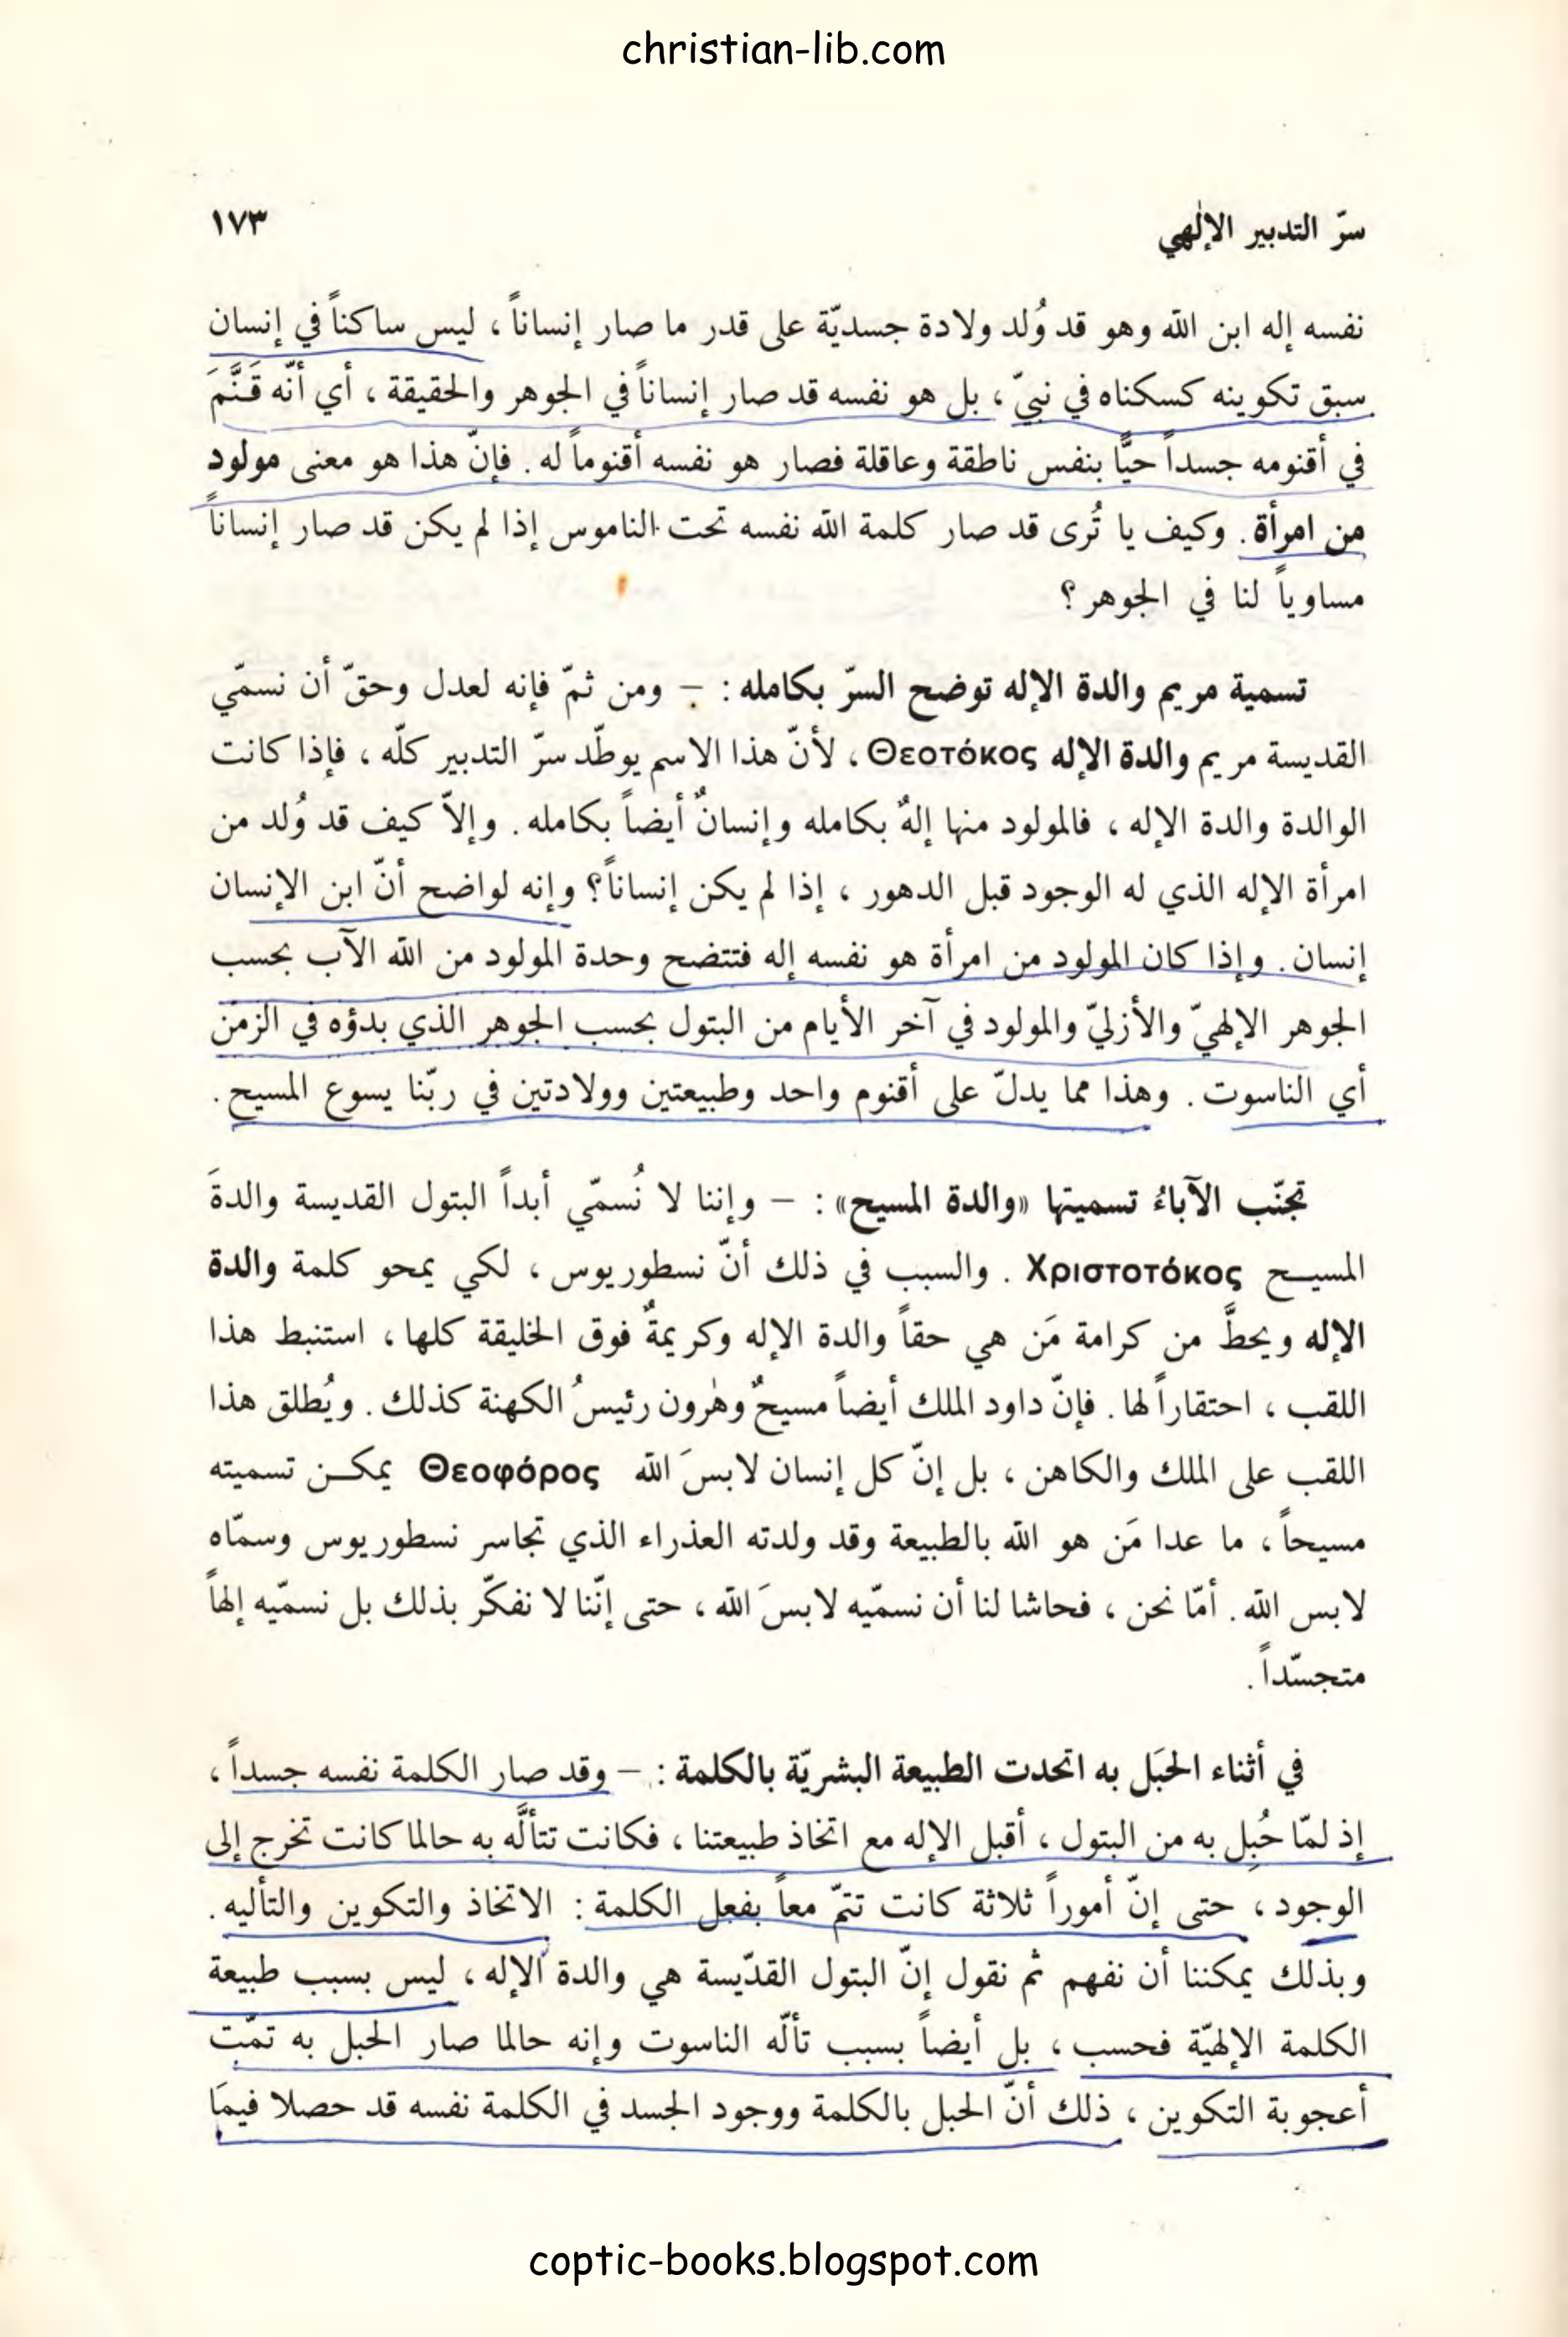 christian-lib.com
سرّ التدبير الإلٰهي ١٧٣
نفسه إله ابن الله وهو قد وُلد ولادة جسديّة على قدر ما صار إنساناً ، ليس ساكناً في إنسان
سبق تكوينه كسكناه في نبيّ ، بل هو نفسه قد صار إنساناً في الجوهر والحقيقة ، أي أنّه قَنَّمَ
في أقنومه جسداً حيًّا بنفس ناطقة وعاقلة فصار هو نفسه أقنوماً له . فإنّ هذا هو معنى مولود
من امرأة . وكيف يا تُرى قد صار كلمة الله نفسه تحت الناموس إذا لم يكن قد صار إنساناً
مساوياً لنا في الجوهر ؟
تسمية مريم والدة الإله توضح السرّ بكامله : – ومن ثمّ فإنه لعدل وحقّ أن نسمّي
القديسة مريم والدة الإله Θεοτόκος ، لأنّ هذا الاسم يوطّد سرّ التدبير كلّه ، فإذا كانت
الوالدة والدة الإله ، فالمولود منها إلهٌ بكامله وإنسانٌ أيضاً بكامله . وإلاّ كيف قد وُلد من
امرأة الإله الذي له الوجود قبل الدهور ، إذا لم يكن إنساناً؟ وإنه لواضح أنّ ابن الإنسان
إنسان . وإذا كان المولود من امرأة هو نفسه إله فتتضح وحدة المولود من الله الآب بحسب
الجوهر الإلهيّ والأزليّ والمولود في آخر الأيام من البتول بحسب الجوهر الذي بدؤه في الزمن
أي الناسوت . وهذا مما يدلّ على أقنوم واحد وطبيعتين وولادتين في ربّنا يسوع المسيح .
تجنّب الآباءُ تسميتها «والدة المسيح» : – وإننا لا نُسمّي أبداً البتول القديسة والدةَ
المسيـح Χριστοτόκος . والسبب في ذلك أنّ نسطوريوس ، لكي يمحو كلمة والدة
الإله ويحطَّ من كرامة مَن هي حقاً والدة الإله وكريمةٌ فوق الخليقة كلها ، استنبط هذا
اللقب ، احتقاراً لها . فإنّ داود الملك أيضاً مسيحٌ وهٰرون رئيسُ الكهنة كذلك . ويُطلق هذا
اللقب على الملك والكاهن ، بل إنّ كل إنسان لابسَ الله Θεοφόρος يمكـن تسميته
مسيحاً ، ما عدا مَن هو الله بالطبيعة وقد ولدته العذراء الذي تجاسر نسطوريوس وسمّاه
لابس الله . أمّا نحن ، فحاشا لنا أن نسمّيه لابسَ الله ، حتى إنّنا لا نفكّر بذلك بل نسمّيه إلهاً
متجسّداً .
في أثناء الحبَل به اتحدت الطبيعة البشريّة بالكلمة : – وقد صار الكلمة نفسه جسداً ،
إذ لمّا حُبِل به من البتول ، أقبل الإله مع اتخاذ طبيعتنا ، فكانت تتألَّه به حالما كانت تخرج إلى
الوجود ، حتى إنّ أموراً ثلاثة كانت تتمّ معاً بفعل الكلمة : الاتخاذ والتكوين والتأليه .
وبذلك يمكننا أن نفهم ثم نقول إنّ البتول القدّيسة هي والدة الإله ، ليس بسبب طبيعة
الكلمة الإلهيّة فحسب ، بل أيضاً بسبب تألّه الناسوت وإنه حالما صار الحبل به تمّت
أعجوبة التكوين ، ذلك أنّ الحبل بالكلمة ووجود الجسد في الكلمة نفسه قد حصلا فيمَا
coptic-books.blogspot.com